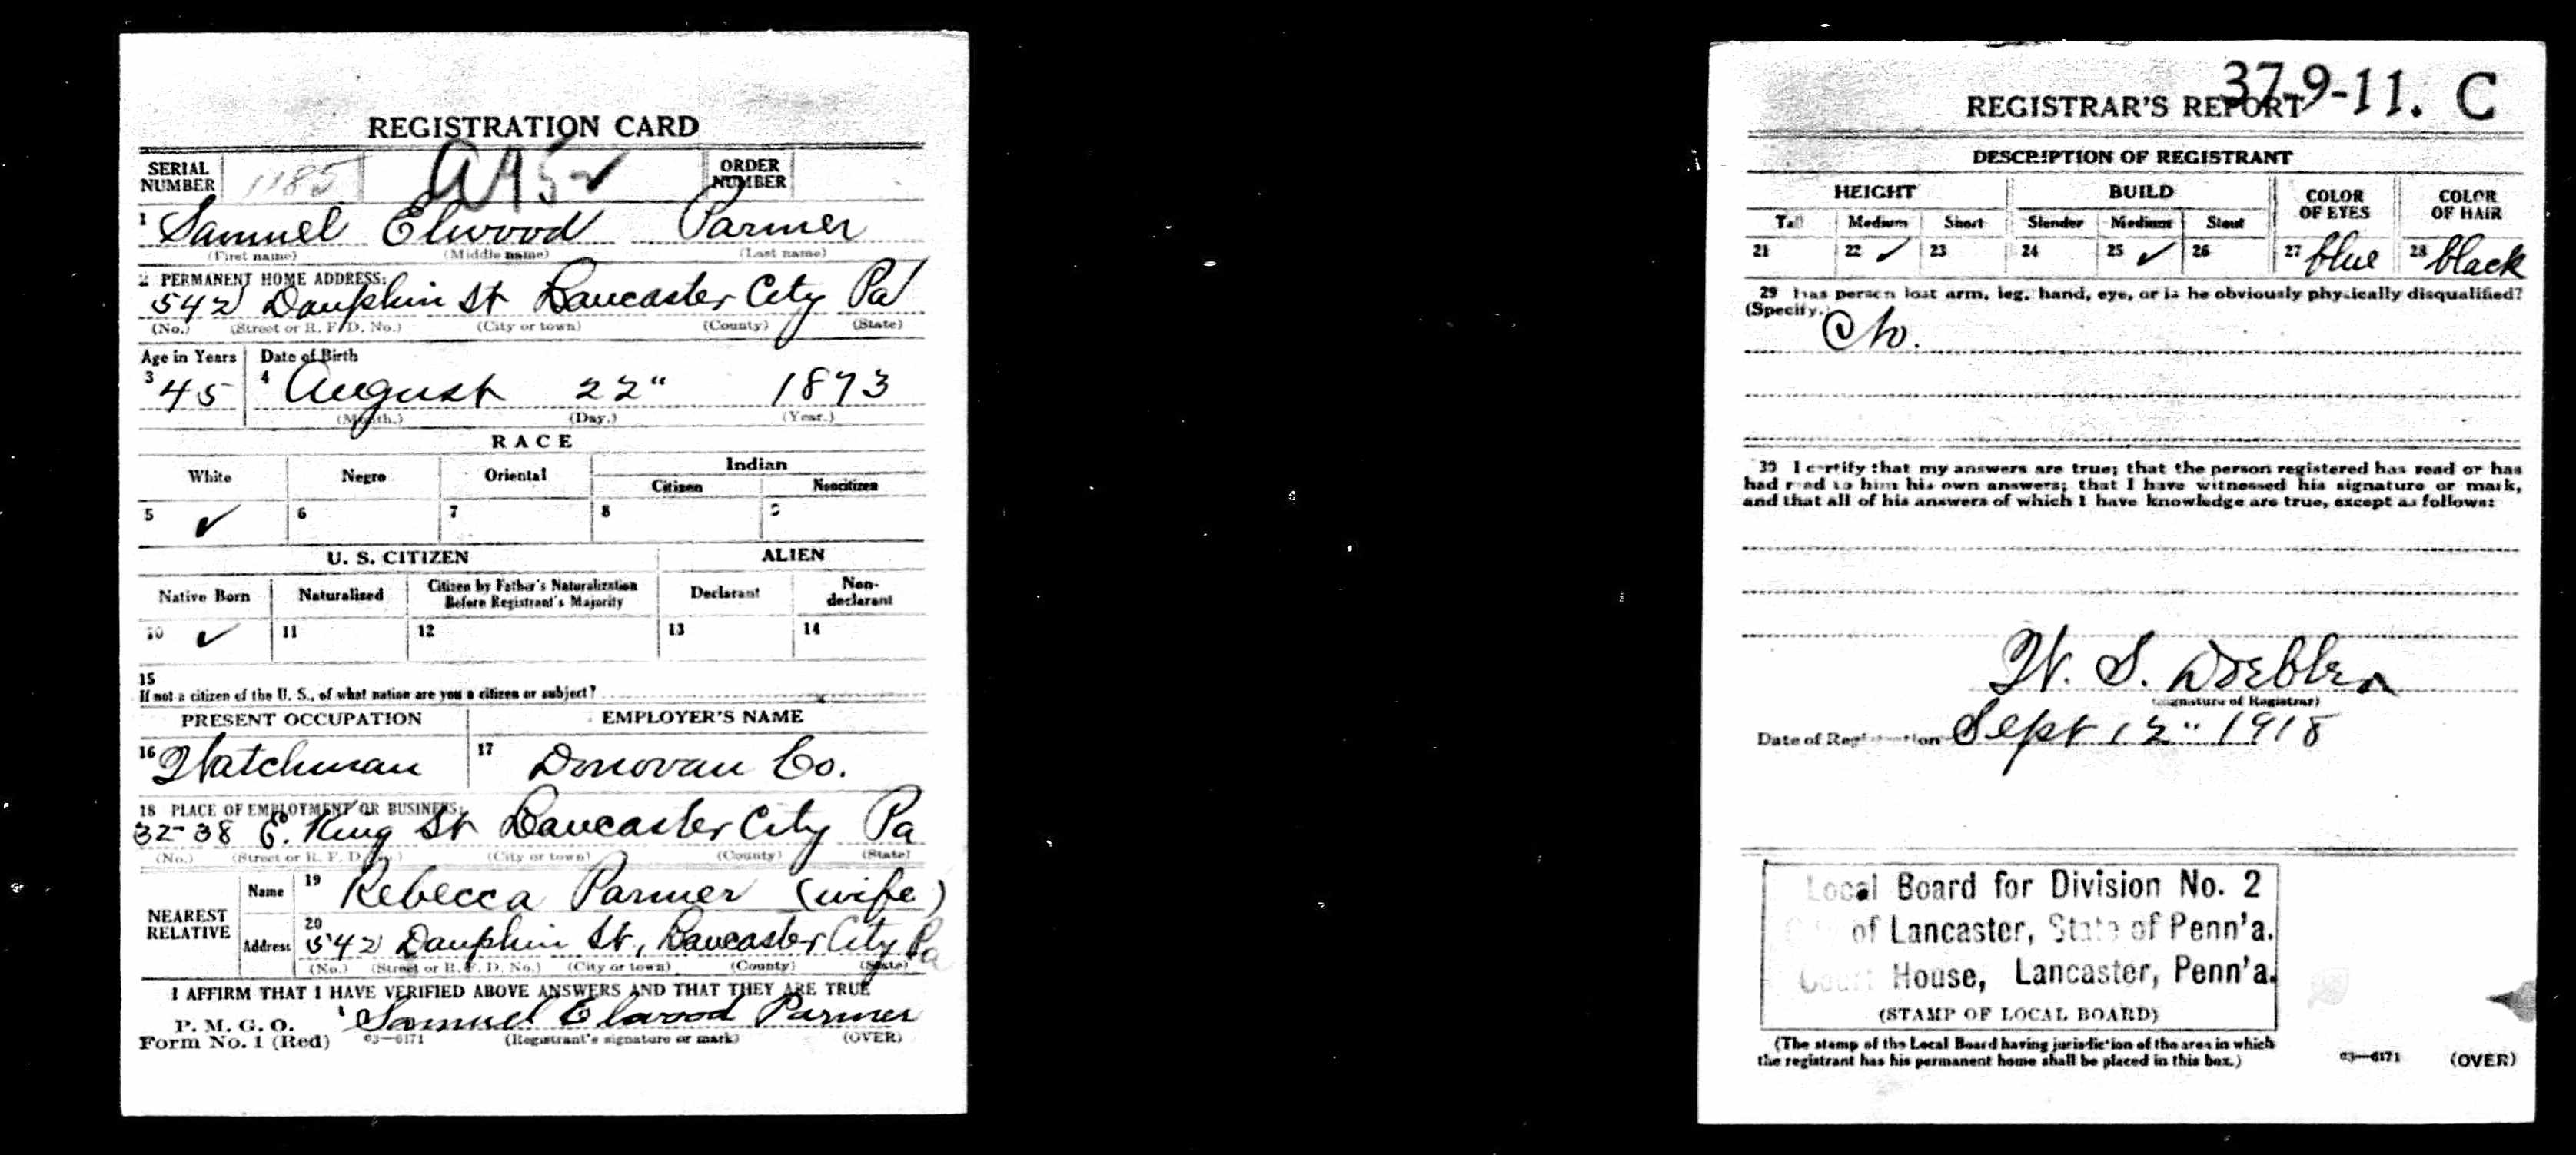 REGISTRATION CARD
SERIAL NUMBER 1185 A95 ✓ ORDER NUMBER
1 Samuel Elwood Parmer
(First name) (Middle name) (Last name)
2 PERMANENT HOME ADDRESS:
542 Dauphin St Lancaster City Pa
(No.) (Street or R. F. D. No.) (City or town) (County) (State)
Age in Years Date of Birth
3 45 4 August 22" 1873
(Month.) (Day.) (Year.)
RACE
White Negro Oriental Indian
Citizen Noncitizen
5 ✓ 6 7 8 9
U. S. CITIZEN ALIEN
Native Born Naturalized Citizen by Father's Naturalization Before Registrant's Majority Declarant Non-declarant
10 ✓ 11 12 13 14
15
If not a citizen of the U. S., of what nation are you a citizen or subject?
PRESENT OCCUPATION EMPLOYER'S NAME
16 Watchman 17 Donovan Co.
18 PLACE OF EMPLOYMENT OR BUSINESS:
32-38 E. King St Lancaster City Pa
(No.) (Street or R. F. D. No.) (City or town) (County) (State)
NEAREST RELATIVE
Name 19 Rebecca Parmer (wife)
Address 20 542 Dauphin St, Lancaster City Pa
(No.) (Street or R. F. D. No.) (City or town) (County) (State)
I AFFIRM THAT I HAVE VERIFIED ABOVE ANSWERS AND THAT THEY ARE TRUE
P. M. G. O.
Form No. 1 (Red) 03—6171
Samuel Elwood Parmer
(Registrant's signature or mark) (OVER)
37-9-11. C
REGISTRAR'S REPORT
DESCRIPTION OF REGISTRANT
HEIGHT BUILD COLOR OF EYES COLOR OF HAIR
Tall Medium Short Slender Medium Stout
21 22 ✓ 23 24 25 ✓ 26 27 blue 28 black
29 Has person lost arm, leg, hand, eye, or is he obviously physically disqualified?
(Specify.)
No.
30 I certify that my answers are true; that the person registered has read or has
had read to him his own answers; that I have witnessed his signature or mark,
and that all of his answers of which I have knowledge are true, except as follows:
W. S. Doebler
(Signature of Registrar)
Date of Registration Sept 12" 1918
Local Board for Division No. 2
City of Lancaster, State of Penn'a.
Court House, Lancaster, Penn'a.
(STAMP OF LOCAL BOARD)
(The stamp of the Local Board having jurisdiction of the area in which
the registrant has his permanent home shall be placed in this box.)
03—6171 (OVER)